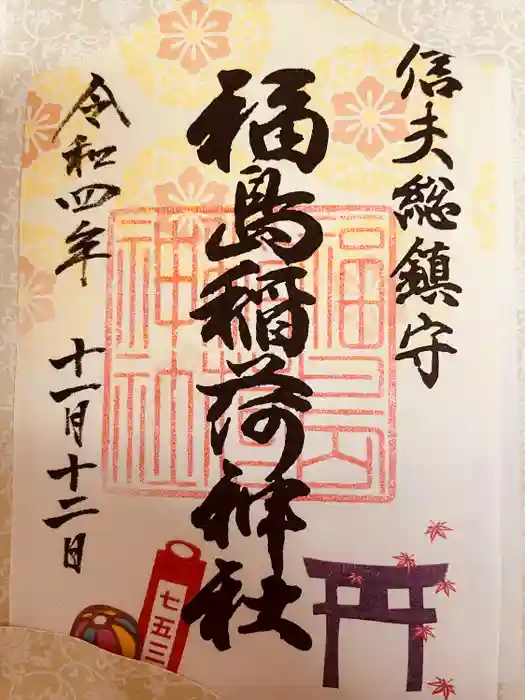 信夫総鎮守
福島稲荷神社
令和四年 十一月十二日
福島稲荷神社
七五三